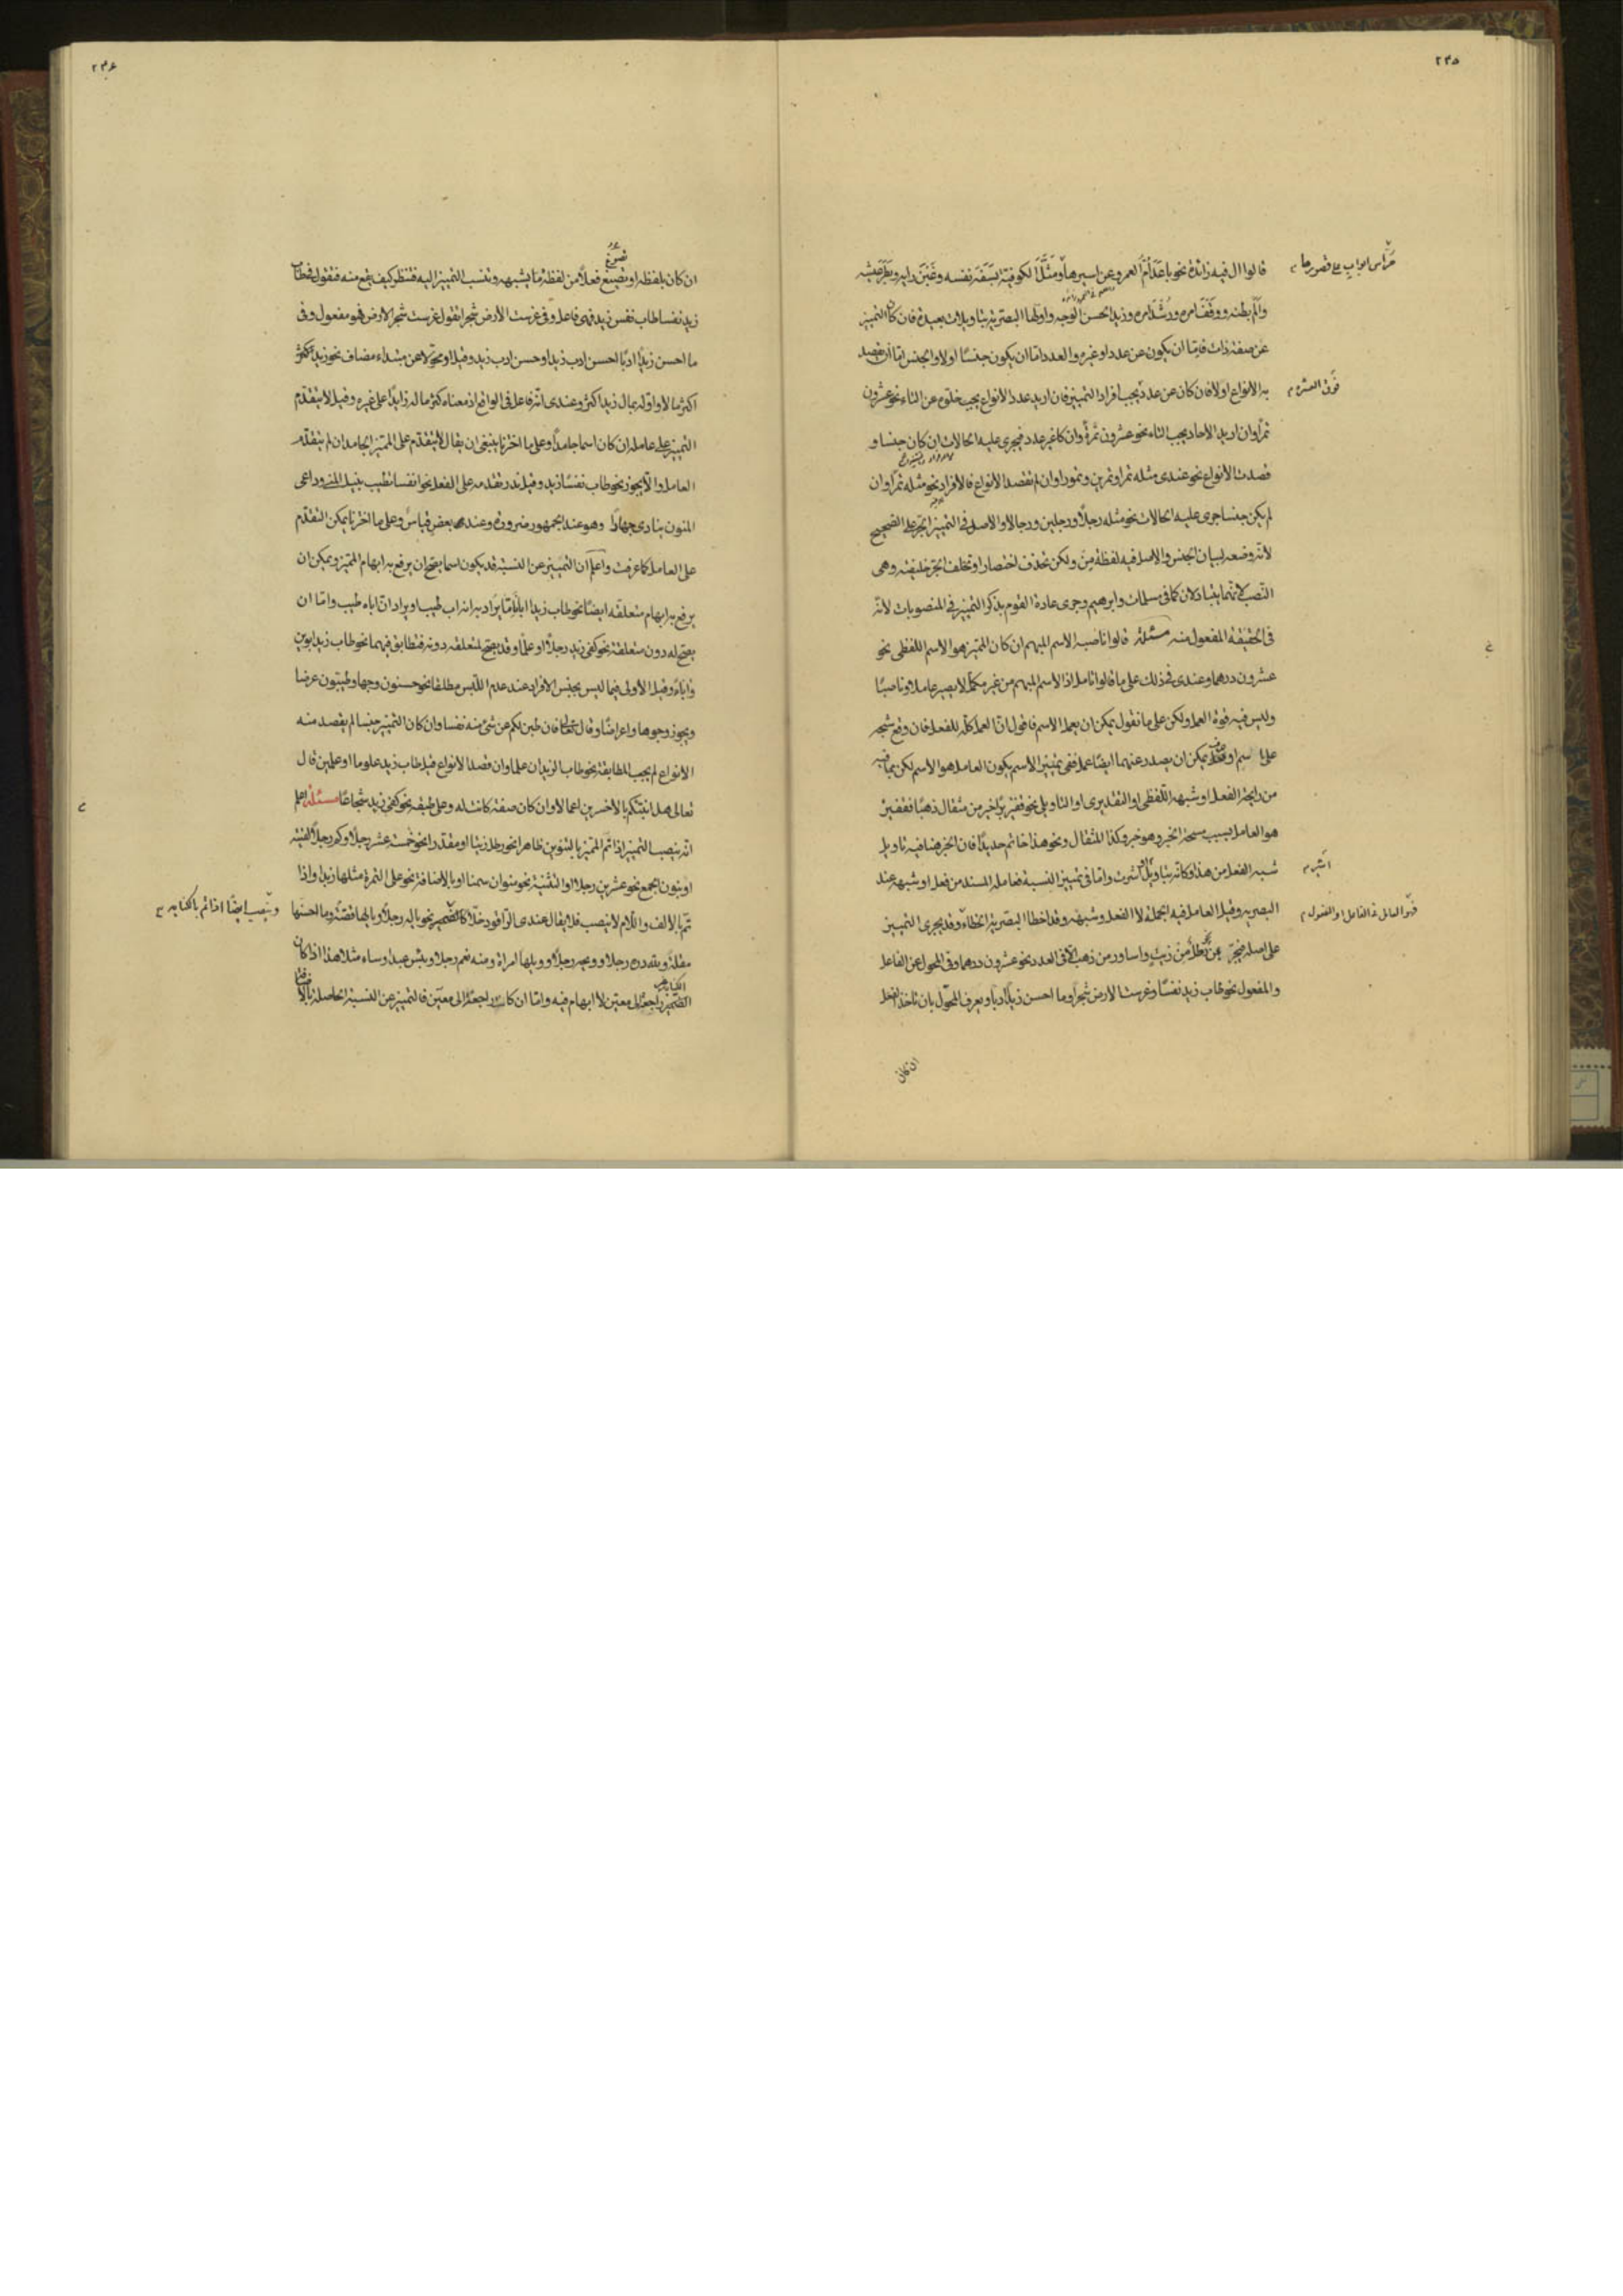 ٢٣٥
قالوا ال فيه زائدة نحو باعد ام العمرو عن اسيرها ومثل الكوفية بسفه نفسه وغبن رايه وبطر عيشه
حراس ابواب على قصورها
والم بطنه ووفق امره ورشد امره وزيد الحسن الوجه واولها البصرية بتاويلات بعيدة فان كان التميز
عن صفة ذات فاما ان يكون عن عدد او غيره والعدد اما ان يكون جنسا اولا والجنس اما ان يقصد
به الانواع اولا فان كان عن عدد يجب افراد التميز فان اريد عدد الانواع يجب خلوه عن التاء نحو عشرون
فوق العشرة
تمرا وان اريد الاحاد يجب التاء نحو عشرون تمرة وان كا غير عدد فيجرى عليه الحالات ان كان جنسا و
قصدت الانواع نحو عندى مثله تمرا وتمرين وتمورا وان لم تقصد الانواع فالافراد نحو مثله تمرا وان
لم يكن جنسا جرى عليه الحالات نحو مثله رجلا ورجلين ورجالا والاصل فى التميز الجر على الصحيح
لانه وضعه لبيان الجنس والاصل فيه لفظة من ولكن تحذف اختصارا وتخلف الجر خليفته وهى
النصب لانهما يتبادلان كما فى مسلمات وابرهيم وجرى عادة القوم بذكر التميز فى المنصوبات لانه
فى الحقيقة المفعول منه مسئلة قالوا ناصبه الاسم المبهم ان كان المميز هو الاسم اللفظى نحو
عشرون درهما وعندى فى ذلك على ما قالوا تامل اذ الاسم المبهم من غير مكمل لا يصير عاملا وناصبا
وليس فيه قوة العمل ولكن على ما نقول يمكن ان يعمل الاسم فاقول ان العمل كله للفعل فان وقع شبحه
على اسم او حرف يمكن ان يصدر عنهما ايضا عمله ففى تميز الاسم يكون العامل هو الاسم لكن بما فيه
من رايحة الفعل او شبهه اللفظى او التقديرى او التاويلى نحو قفيز بر اخير من مثقال ذهبا فقفيز
هو العامل بسبب سبحة الخبر وهو خير وكذا المثقال ونحو هذا خاتم حديدا فان الخبر هنا فيه تاويل
شبه الفعل من هذا وكانه بتاويل اشرت واما فى تميز النسبة فعامله المسند من فعل او شبهه عند
اشير
البصرية وقيل العامل فيه الجملة لا الفعل وشبهه وقد اخطا البصرية الخطاء وقد يجرى التميز
على اصله فيجر بمن نحو رطل من زيت واساور من ذهب الا فى العدد نحو عشرون درهما وفى المحول عن الفاعل
والمفعول نحو طاب زيد نفسا وغرست الارض شجرا وما احسن زيدا ادبا ويعرف المحول بان تاخذ الفعل
ان كان
٢٣۶
ان كان بلفظه او تصيغ فعلا من لفظة ما يشبهه وتنسب التميز اليه فتنظر كيف يقع منه فتقول فى طاب
زيد نفسا طاب نفس زيد فهى فاعل وفى غرست الارض شجرا تقول غرست شجر الارض فهو مفعول وفى
ما احسن زيدا ادبا احسن ادب زيد او حسن ادب زيد وقيل او محولا عن مبتداء مضاف نحو زيد اكثر
اكثر مالا واوله بمال زيد اكثر وعندى انه فاعل فى الواقع اذ معناه كثر ماله زايدا على غيره وقيل لا يتقدم
التميز على عامله ان كان اسما جامدا وعلى ما اخترنا ينبغى ان يقال لا يتقدم على المميز الجامد ان لم يتقدمه
العامل والا يجوز نحو طاب نفسا زيد وقيل ندر تقدمه على الفعل نحو انفسا تطيب بنيل المنى وداعى
المنون ينادى جهارا وهو عند الجمهور ضرورة وعند بعض قياس وعلى ما اخترنا يمكن التقدم
على العامل كما عرفت واعلم ان التميز عن النسبة قد يكون اسما يصح ان يرفع به ابهام المميز ويمكن ان
يرفع به ابهام متعلقه ايضا نحو طاب زيد ابا اما يراد به انه اب طيب او يراد ان اباه طيب واما ان
يصح له دون متعلقه نحو كفى زيد رجلا او علما وقد يصح لمتعلقه دونه فتطابق فيهما نحو طاب زيد ابوين
واباء وقيل الاولى فيما ليس بجنس الافراد عند عدم اللبس مطلقا نحو حسنون وجها وطيبون عرضا
ويجوز وجوها واعراضا وقال تعالى فان طبن لكم عن شئ منه نفسا وان كان التميز جنسا لم يقصد منه
الانواع لم يجب المطابقة نحو طاب الزيدان علما وان قصد الانواع قيل طاب زيد علوما او علمين قال
تعالى هل انبئكم بالاخسرين اعمالا وان كان صفة كانت له وعلى طبقه نحو كفى زيد شجاعا مسئلة اعلم
انه ينصب التميز اذا تم المميز بالتنوين ظاهرا نحو رطل زيتا او مقدرا نحو خمسة عشر رجلا وكم رجلا لقيته
او بنون الجمع نحو عشرين رجلا او التثنية نحو منوان سمنا او بالاضافة نحو على التمرة مثلها زبدا واذا
تم بالالف واللام لا ينصب فلا يقال عندى الراقود خلا كالضمير نحو ياله رجلا ويا لها قضة وما احسنها
وينصب ايضا اذا تم بالكنايه
مقلة ولله دره رجلا وويحه رجلا وويلها امراة ومنه نعم رجلا وبئس عبدا وساء مثلا هذا اذا كان
الضمير راجعا الى معين لا ابهام فيه واما ان كان راجعا الى معين فالتميز عن النسبة الحاصلة